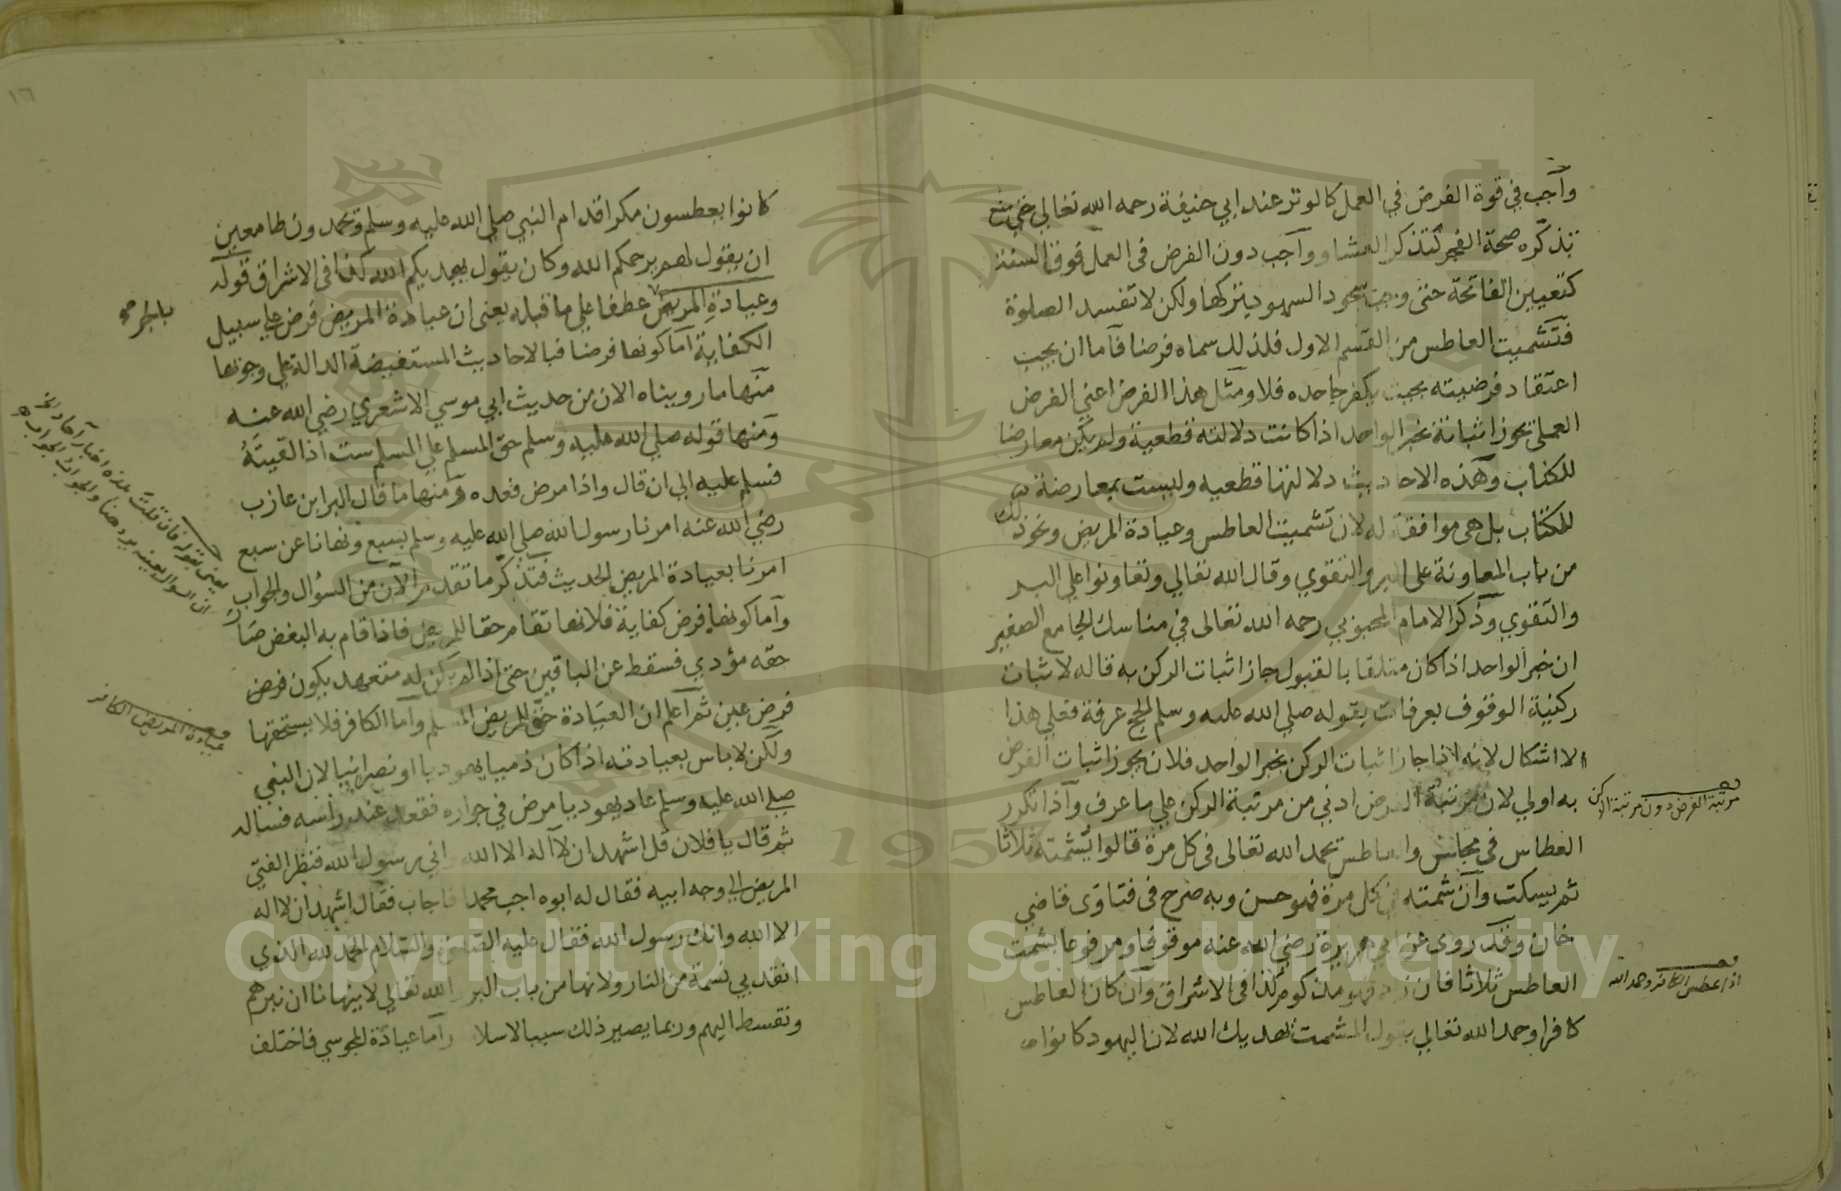 واجب في قوة الفرض في العمل كالوتر عند ابي حنيفة رحمه الله تعالى حتى منع
تذكره صحة الفجر كتذكر العشاء وواجب دون الفرض في العمل فوق السنة
كتعيين الفاتحة حتى وجب سجود السهو بتركها ولكن لا تفسد الصلوة
فتشميت العاطس من القسم الاول فلذلك سماه فرضا فاما ان يجب
اعتقاد فرضيته بحيث يكفر جاحده فلا ومثل هذا الفرض اعني الفرض
العملي يجوز اثباته بخبر الواحد اذا كانت دلالته قطعية ولم يكن معارضا
للكتاب وهذه الاحاديث دلالتها قطعيه وليست بمعارضة
للكتاب بل هي موافقة له لان تشميت العاطس وعيادة المريض ونحو ذلك
من باب المعاونة على البر والتقوي وقال الله تعالي وتعاونوا على البر
والتقوي وذكر الامام المحبوبي رحمه الله تعالى في مناسك الجامع الصغير
ان خبر الواحد اذا كان متلقا بالقبول جاز اثبات الركن به قاله لاثبات
ركنية الوقوف بعرفات بقوله صلي الله عليه وسلم الحج عرفة فعلي هذا
لا اشكال لانه اذا جاز اثبات الركن بخبر الواحد فلان يجوز اثبات الفرض
به اولي لان مرتبة الفرض ادني من مرتبة الركن علي ما عرف واذا تكرر
العطاس في مجلس والعاطس يحمد الله تعالى في كل مرة قالوا يشمته ثلاثا
ثم يسكت وان شمته في كل مرة فهو حسن وبه صرح في فتاوى قاضي
خان وقد روى عن ابي هريرة رضي الله عنه موقوفا ومرفوعا يشمت
العاطس ثلاثا فان زاد فهو مذكوم كذا في الاشراق وان كان العاطس
كافرا وحمد الله تعالي يقول المشمت يهديك الله لان اليهود كانوا
مرتبة الفرض دون مرتبة الركن
اذا عطس الكافر وحمد الله
١٦
كانوا يعطسون مكرا قدام النبي صلي الله عليه وسلم ويحمدون طامعين
ان يقول لهم يرحمكم الله وكان يقول يهديكم الله كذا في الاشراق قوله
وعيادة المريض عطفا علي ما قبله يعني ان عيادة المريض فرض علي سبيل
الكفاية اما كونها فرضا فبالاحاديث المستفيضة الدالة علي وجوبها
منها ما رويناه الان من حديث ابي موسي الاشعري رضي الله عنه
ومنها قوله صلي الله عليه وسلم حق المسلم علي المسلم ست اذا لقيته
فسلم عليه الي ان قال واذا مرض فعده ومنها ما قال البرا بن عازب
رضي الله عنه امرنا رسول الله صلي الله عليه وسلم بسبع ونهانا عن سبع
امرنا بعيادة المريض الحديث فتذكر ما تقدم الآن من السؤال والجواب
واما كونها فرض كفاية فلانها تقام حقا للمريض فاذا قام به البعض صار
حقه مؤدي فسقط عن الباقين حتى اذا لم يكن له متعهد يكون فرض
فرض عين ثم اعلم ان العيادة حق للمريض المسلم واما الكافر فلا يستحقها
ولكن لا باس بعيادته اذا كان ذميا يهوديا او نصرانيا لان النبي
صلي الله عليه وسلم عاد يهوديا مرض في جواره فقعد عند راسه فساله
ثم قال يا فلان قل اشهد ان لا اله الا الله واني رسول الله فنظر الفتي
المريض الي وجه ابيه فقال له ابوه اجب محمدا فاجاب فقال اشهد ان لا اله
الا الله وانك رسول الله فقال عليه الصلوة والسلام الحمد لله الذي
انقذ بي نسمة من النار ولانها من باب البر والله تعالي لا ينهانا ان نبرهم
ونقسط اليهم وربما يصير ذلك سببا لاسلامهم واما عيادة المجوسي فاختلف
بالجر
يعني بقوله فان قلت هذه اخبار آحاد
ان السوال بعينه يرد هنا والجواب الجواب
عيادة المريض الكافر
Copyright © King Saud University
1957